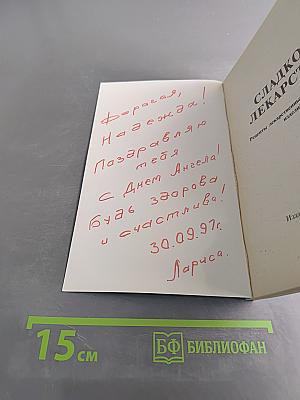 Дорогая,
Надежда!
Поздравляю
тебя
с Днем Ангела!
Будь здорова
и счастлива!
30.09.97г.
Лариса.
СЛАДКО
ЛЕКАРС
Рецепты лекарственны
15 см
БФ БИБЛИОФАН